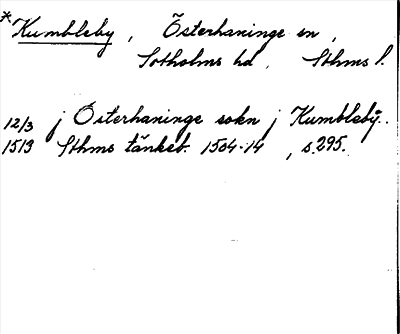 *Kumbleby, Österhaninge sn,
Sotholms hd, Sthms l.
12/3 j Österhaninge sokn j Kumblebÿ..
1513 Sthms tänkeb. 1504-14, s.295.